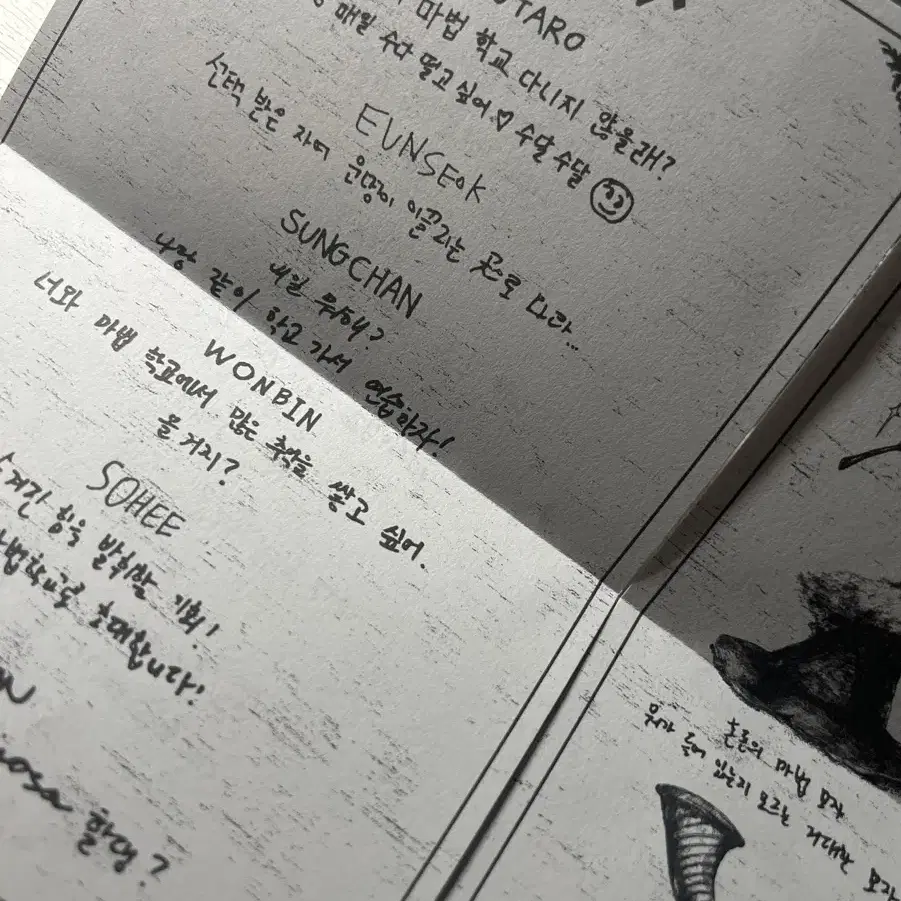 TARO
마법 학교 다니지 않을래?
매일 수다 떨고 싶어♡ 수달수달
EUNSEOK
선택 받은 자여 운명이 이끌리는 곳으로 따라...
SUNGCHAN
내일 뭐해?
나랑 같이 학교 가서 연습하자!
WONBIN
너와 마법 학교에서 많은 추억을 쌓고 싶어.
올 거지?
SOHEE
숨겨진 힘을 발휘할 기회!
마법학교로 초대합니다!
할럼?
혼돈의 마법 모자
뭐가 들어 있는지 모르는 거대한 모자